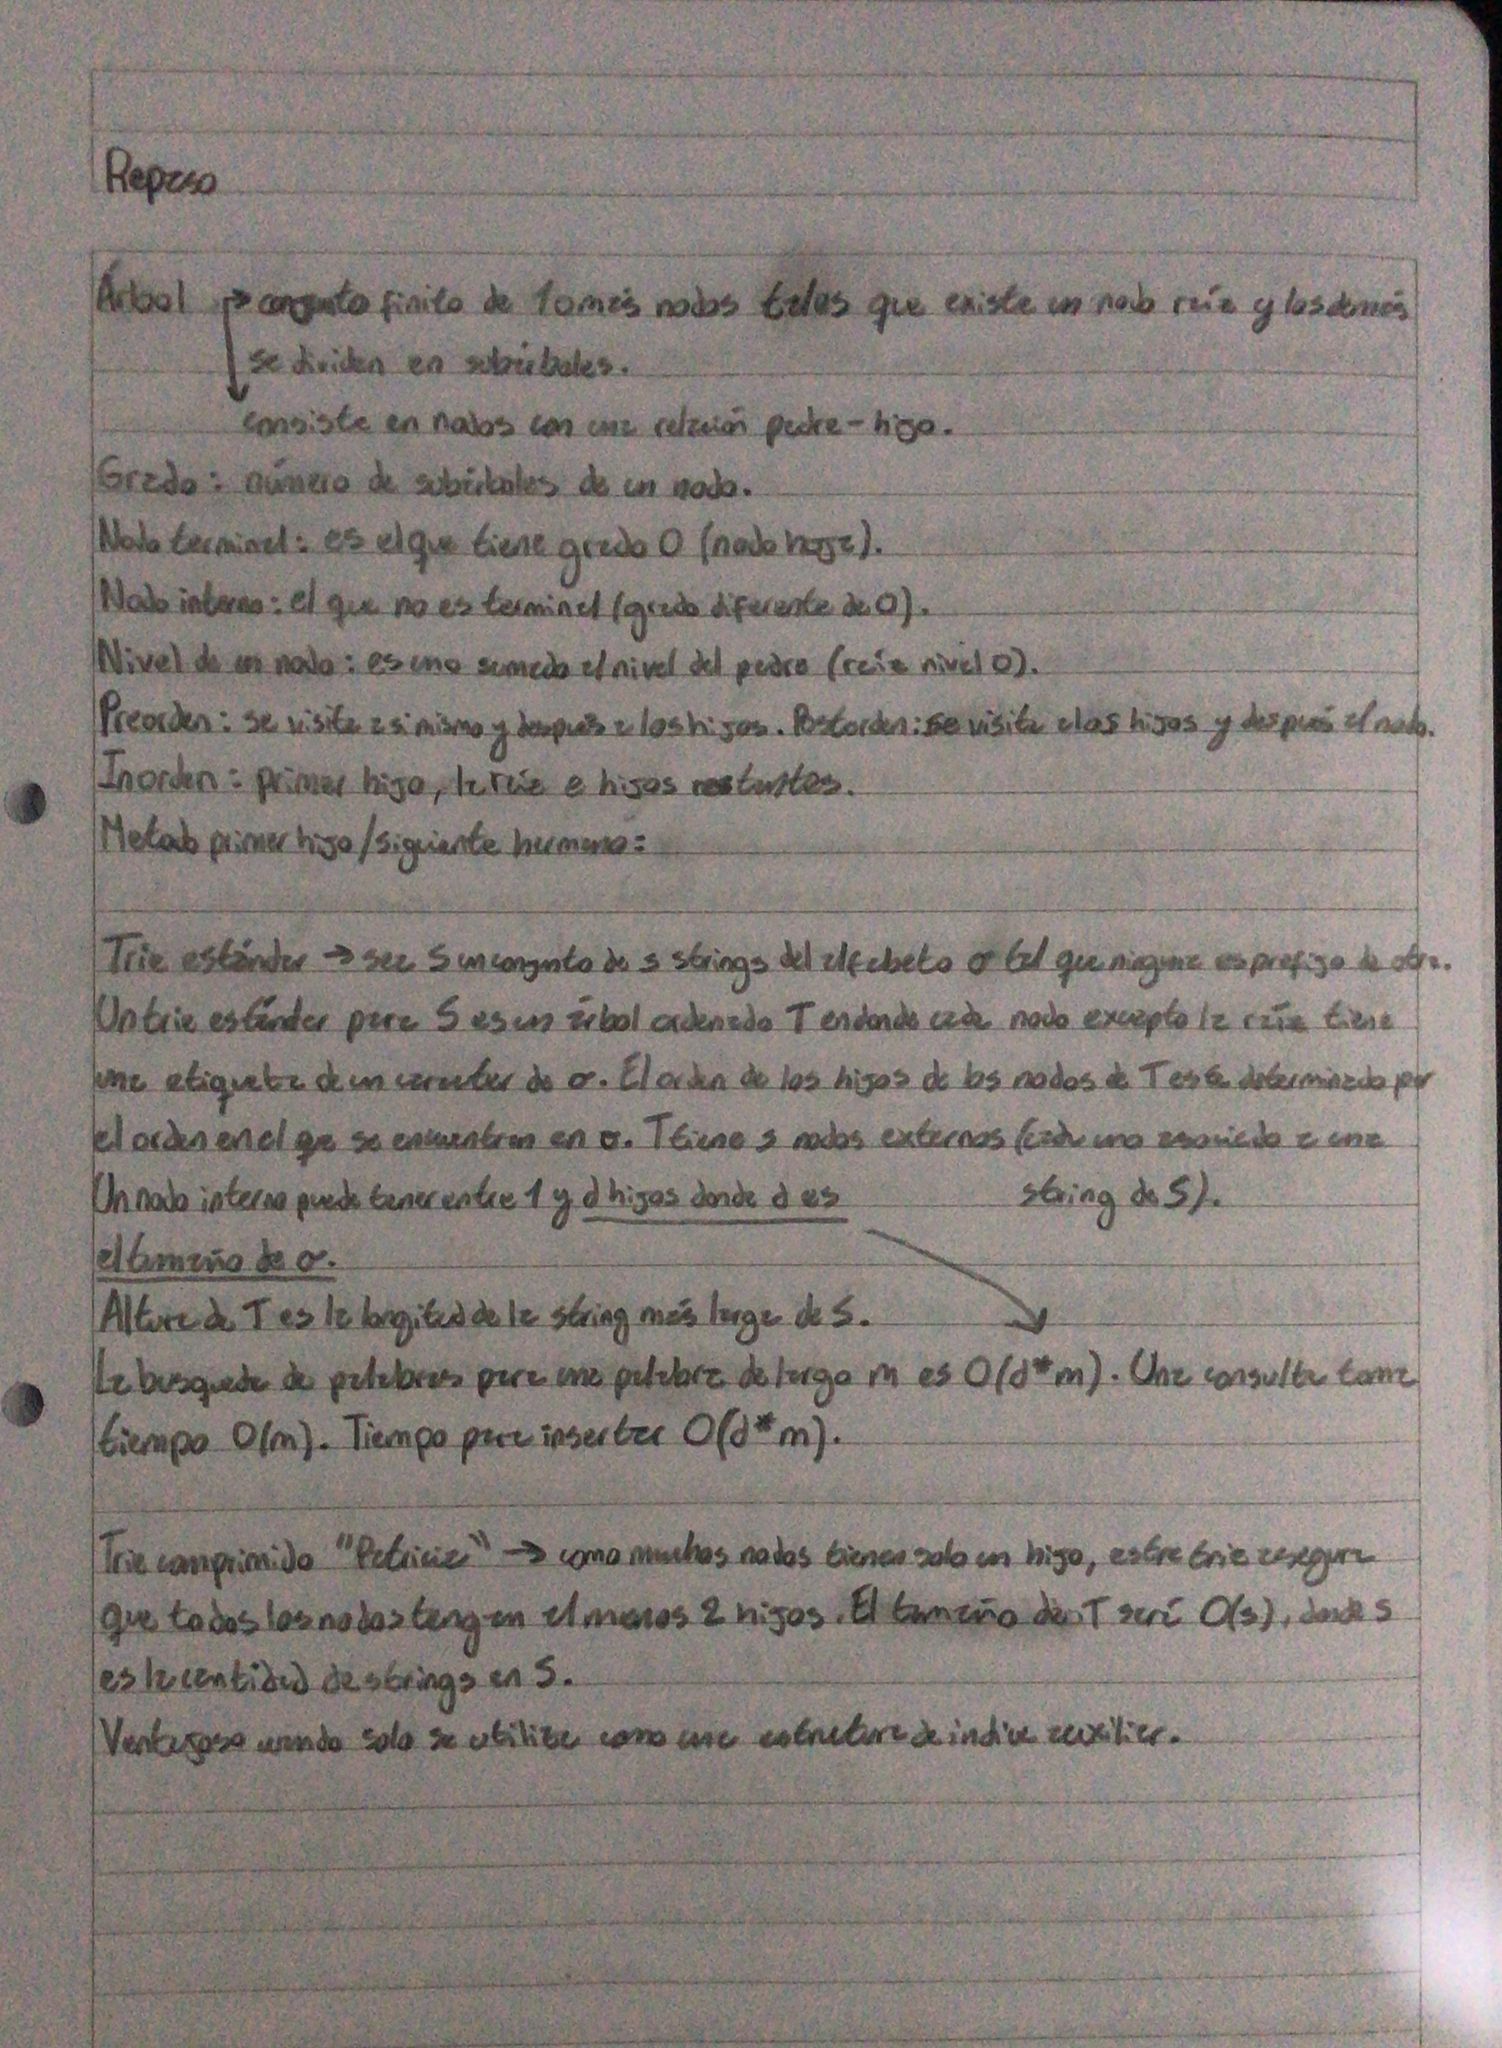 Repaso
Árbol → conjunto finito de 1 o más nodos tales que existe un nodo raíz y los demás
se dividen en subárboles.
consiste en nodos con una relación padre-hijo.
Grado: número de subárboles de un nodo.
Nodo terminal: es el que tiene grado 0 (nodo hoja).
Nodo interno: el que no es terminal (grado diferente de 0).
Nivel de un nodo: es uno sumado al nivel del padre (raíz nivel 0).
Preorden: se visita a si mismo y después a los hijos. Postorden: se visita a los hijos y después al nodo.
Inorden: primer hijo, la raíz e hijos restantes.
Metodo primer hijo/siguiente hermano:
Trie estándar → sea S un conjunto de s strings del alfabeto σ tal que ninguna es prefijo de otra.
Un trie estándar para S es un árbol ordenado T en donde cada nodo excepto la raíz tiene
una etiqueta de un caracter de σ. El orden de los hijos de los nodos de T está determinado por
el orden en el que se encuentran en σ. T tiene s nodos externos (cada uno asociado a una
string de S).
Un nodo interno puede tener entre 1 y d hijos donde d es
el tamaño de σ.
Altura de T es la longitud de la string más larga de S.
La busqueda de palabras para una palabra de largo m es O(d*m). Una consulta toma
tiempo O(m). Tiempo para insertar O(d*m).
Trie comprimido "Patricia" → como muchos nodos tienen solo un hijo, estre trie asegura
que todos los nodos tengan al menos 2 hijos. El tamaño de T será O(s), donde s
es la cantidad de strings en S.
Ventajoso cuando solo se utiliza como una estructura de indice auxiliar.